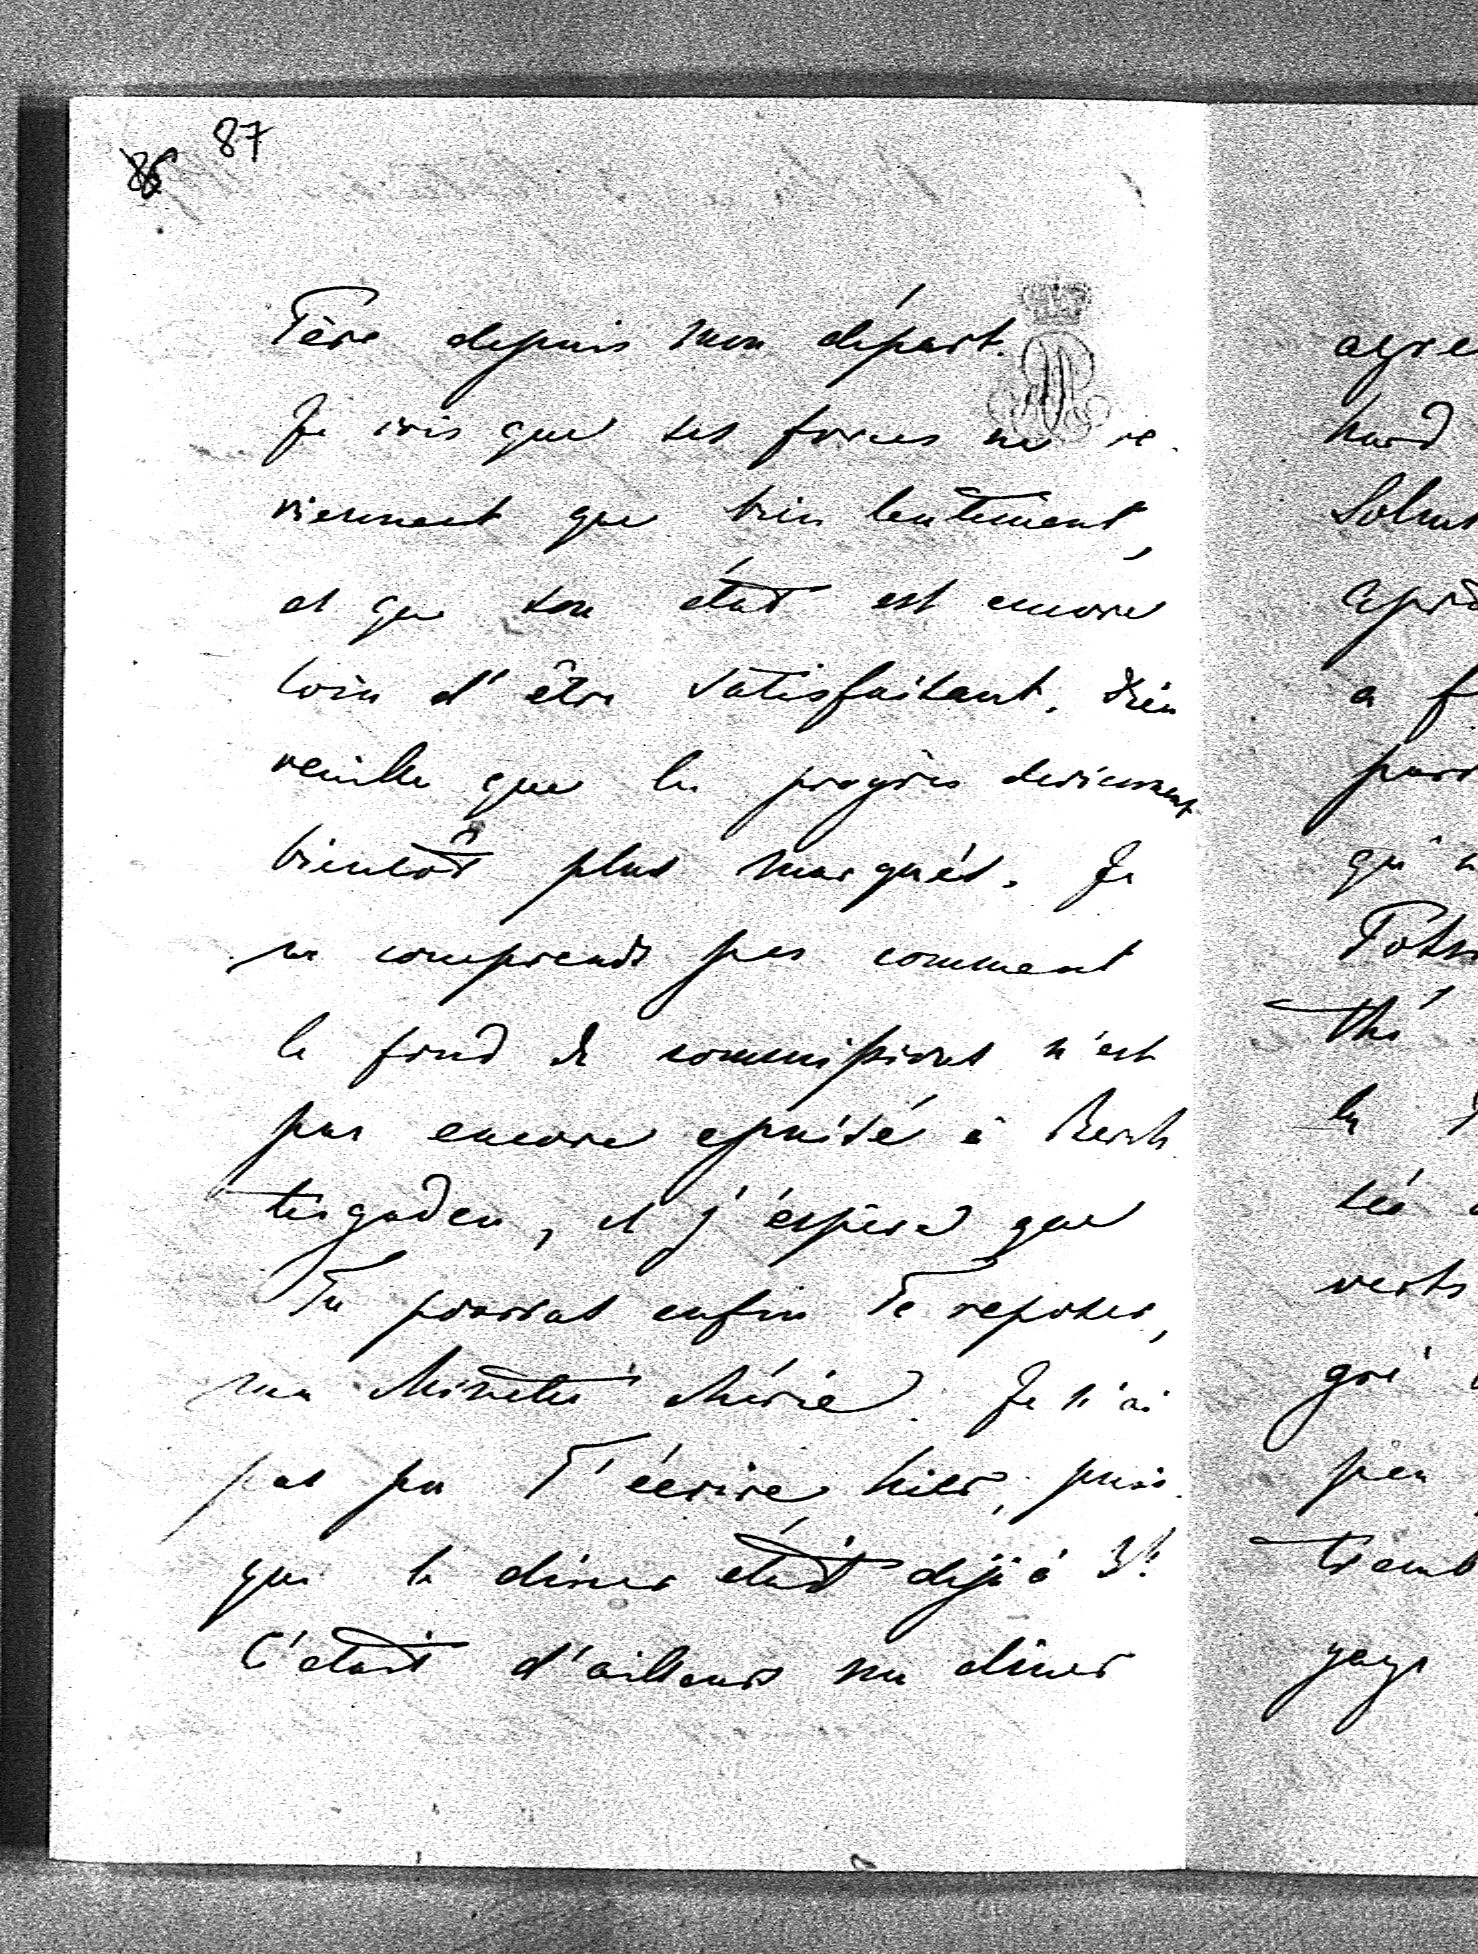 87
86
Père depuis mon départ.
Je vois que ses forces ne re-
viennent que bien lentement,
et que son état est encore
loin d'être satisfaisant. Dieu
veuille que les progrès deviennent
bientôt plus marqués. Je
ne comprends pas comment
le fond de commissions n'est
pas encore epuisé à Berch-
tesgaden, et j'éspère que
Tu pourras enfin Te reposer,
ma Minette chérie. Je n'ai
pas pu T'écrire hier, puis-
que le diner était dejà à 3h
C'était d'ailleurs un diner
agre
hard
après
a f
par
qui n
thé
la
verts
gré
peu
tremb